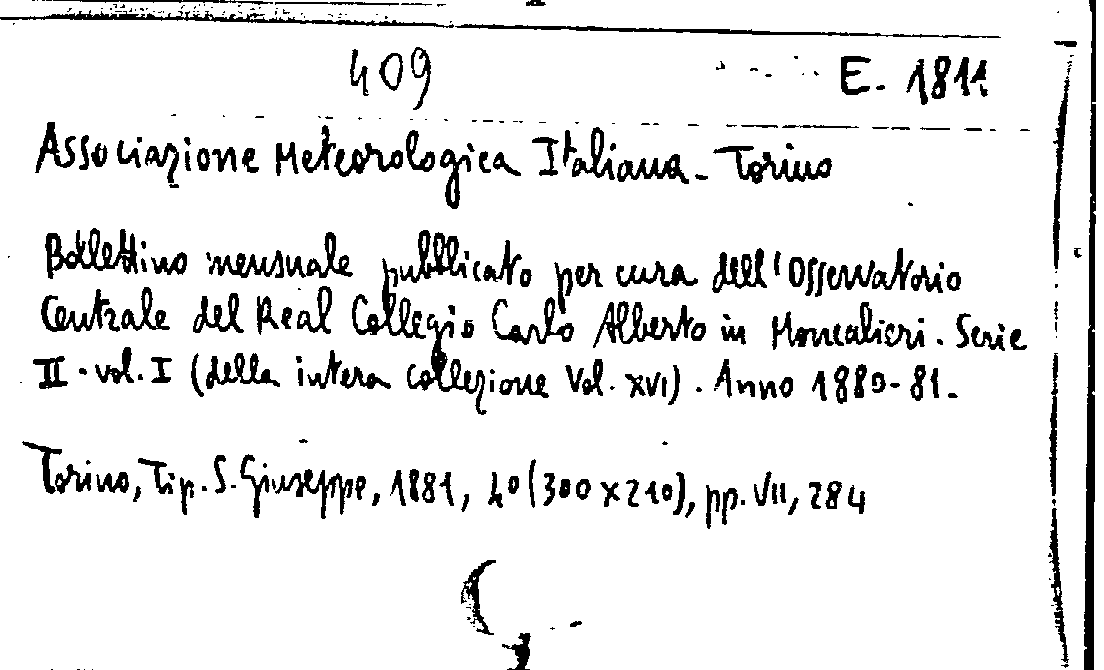 409 E. 1811
Associazione Meteorologica Italiana - Torino
Bollettino mensuale pubblicato per cura dell'Osservatorio
Centrale del Real Collegio Carlo Alberto in Moncalieri. Serie
II - vol. I (della intera collezione Vol. XVI). Anno 1880-81.
Torino, Tip. S. Giuseppe, 1881, 4° (300 x 210), pp. VII, 284